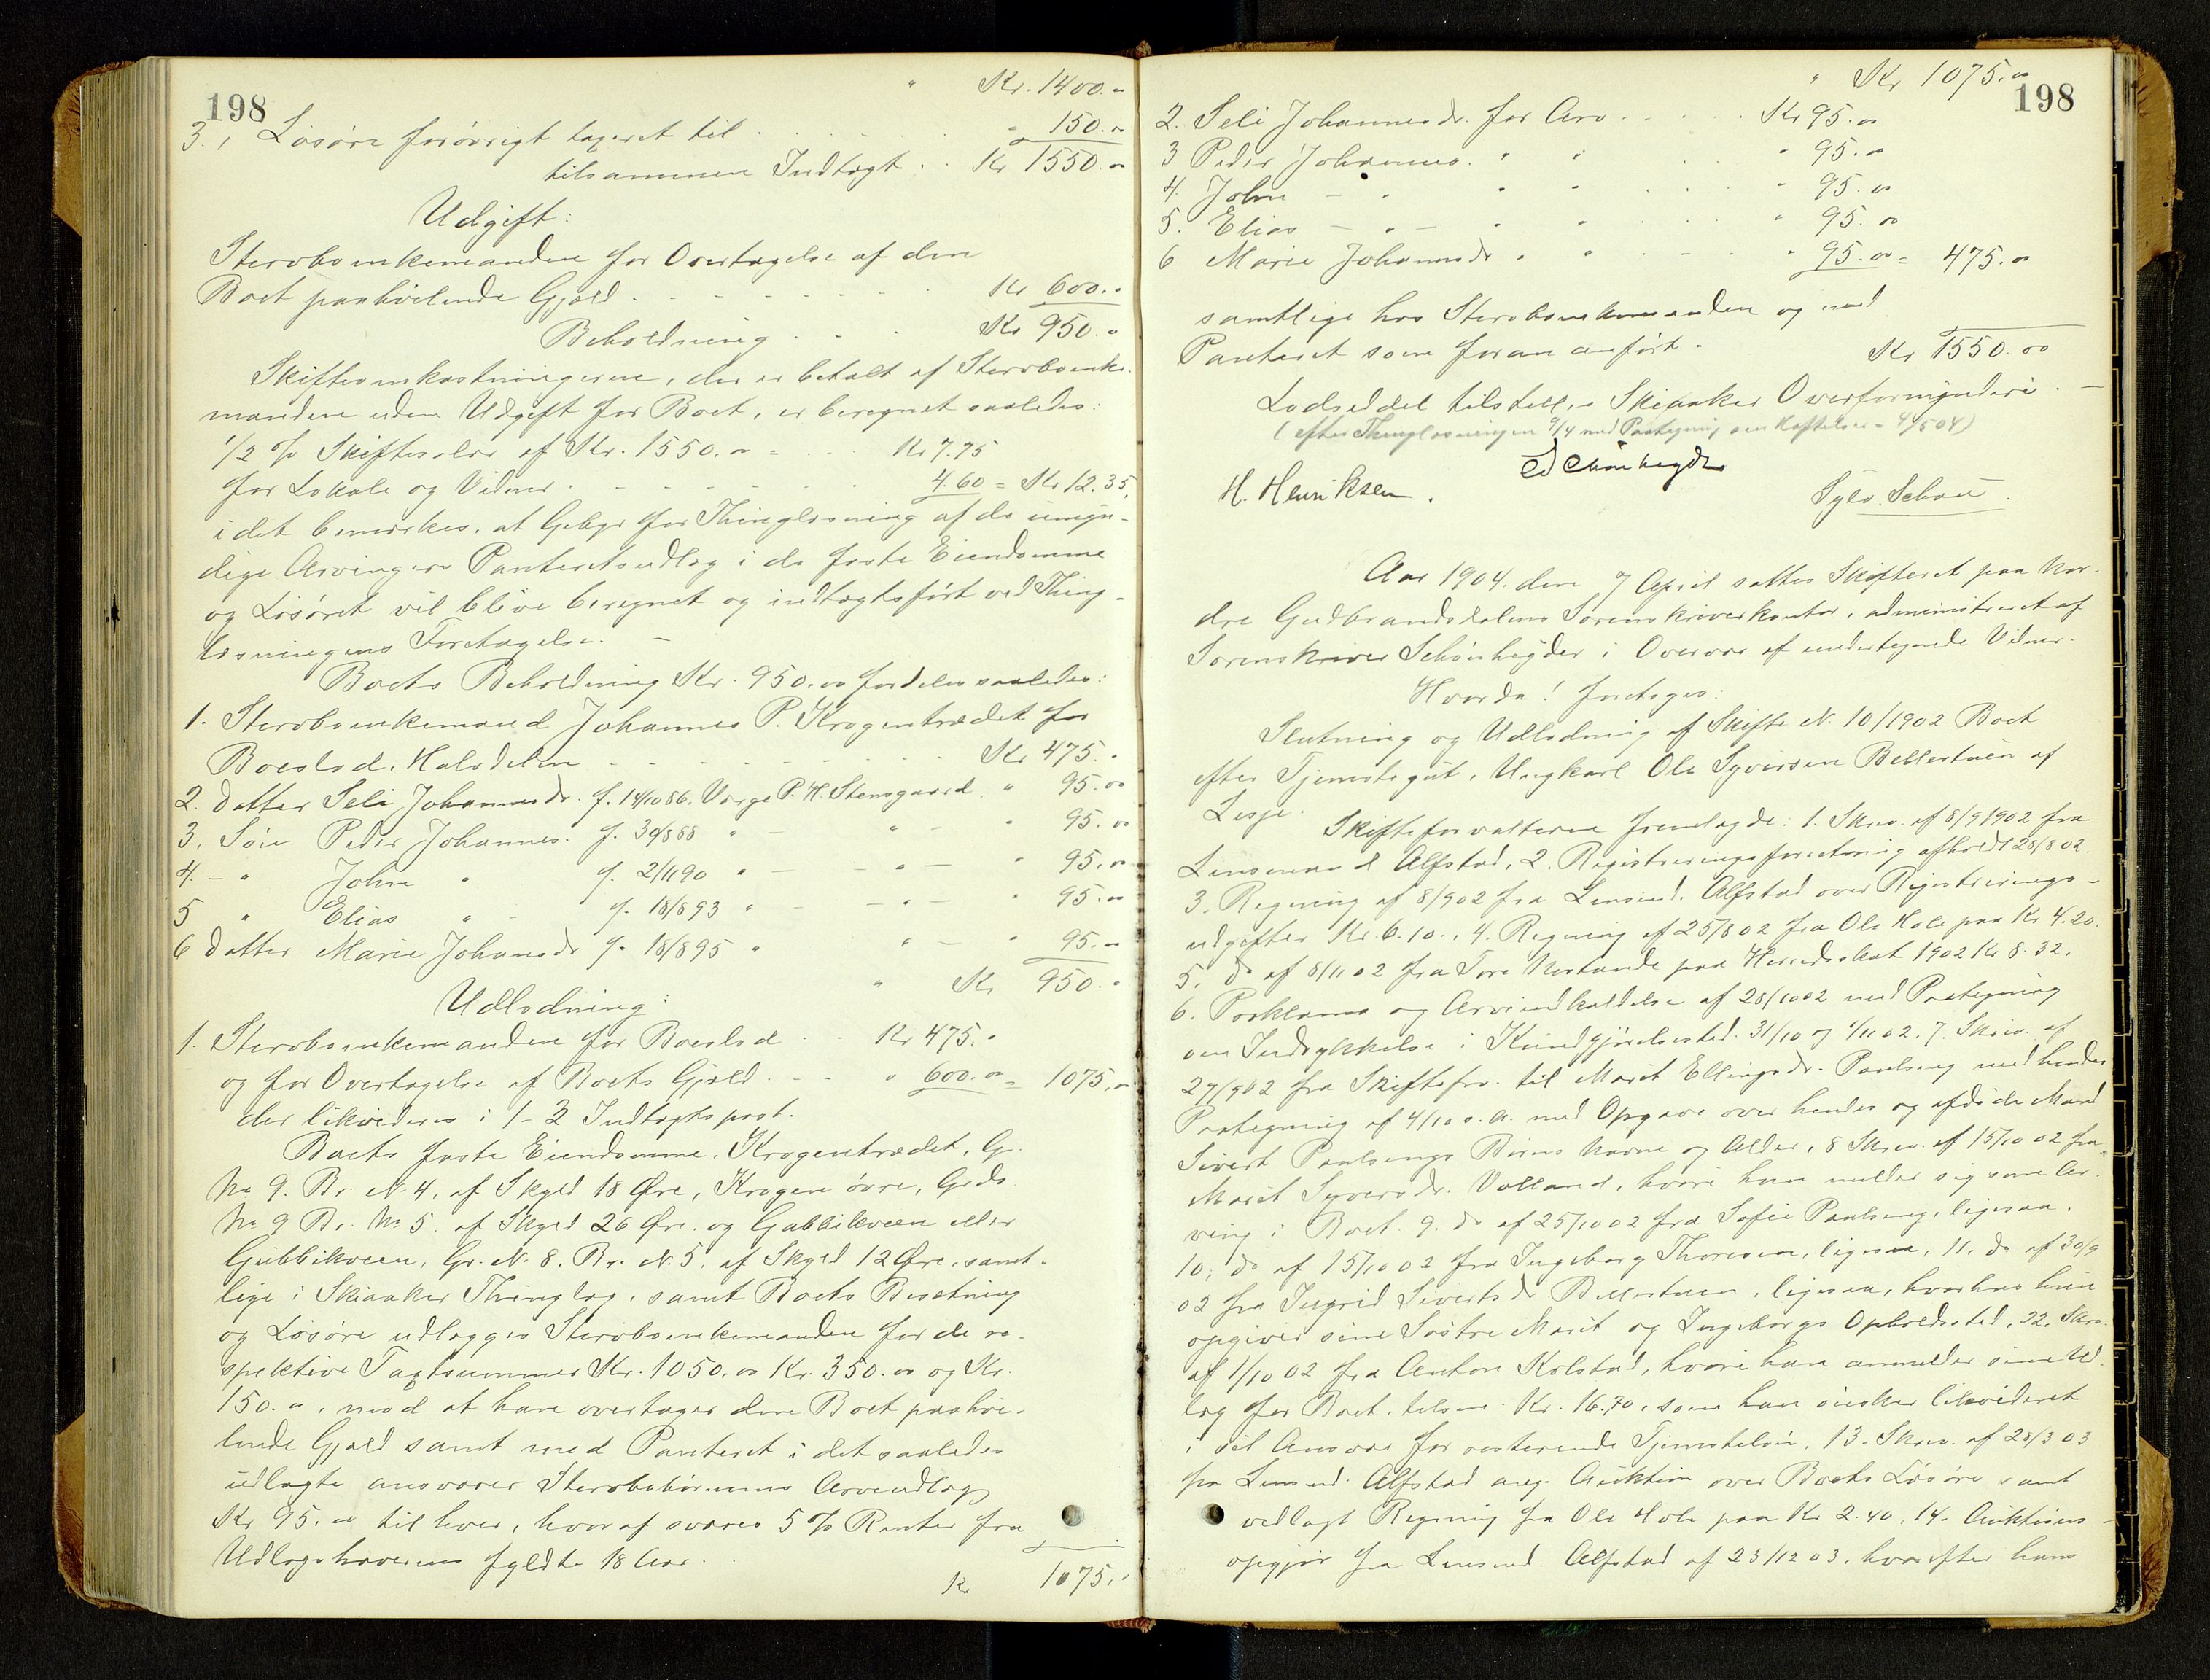 198
" Kr. 1400.-
3., Løsøre forøvrigt taxeret til . . . . " 150.00
tilsammen Indtægt . . Kr 1550.00
Udgift:
Stervboenkemanden for Overtagelse af den
Boet paahvilende Gjæld . . . . . Kr 600.-
Beholdning . . . Kr 950.-
Skifteomkostningerne, der er betalt af Stervboenke-
manden uden Udgift for Boet, er beregnet saaledes:
1/2 % Skiftesalær af Kr. 1550.00 = . . Kr 7.75
for Lokale og Vidner . . . . . 4.60 = Kr 12.35,
idet bemærkes, at Gebyr for Thinglæsning af de umyn-
dige Arvingers Panteretsudlæg i de faste Eiendomme
og Løsøret vil blive beregnet og indtægtsført ved Thing-
læsningens Foretagelse. -
Boets Beholdning Kr. 950.00 fordeles saaledes:
1. Stervboenkemand Johannes P. Krogentrædet for
Boeslod, Halvdelen . . . . . Kr 475.-
2. Datter Seli Johannesdr. f. 14/10 86. Værge P. H. Stensgaard. " 95.00
3. Søn Peder Johannes. f. 30/8 88 " - " - " 95.00
4. - " John " f. 2/11 90 " - " - " 95.00
5 " Elias " - f. 18/8 93 " - " - " 95.00
6 Datter Marie Johansdr f. 18/8 95 " " - " 95.00
" Kr 950.-
Udlodning:
1. Stervboenkemanden for Boeslod . . Kr 475.-
og for Overtagelse af Boets Gjæld . . " 600.00 = 1075.00
der likvideres i 1-3 Indtægtspost.
Boets faste Eiendomme, Krogentrædet, G.
No 9. Br. N. 4, af Skyld 18 Øre, Krogen øvre, Grds.
No 9 Br. No 5. af Skyld 26 Øre. og Gabbikveen eller
Gubbikveen, Gr. N. 8. Br. N. 5. af Skyld 12 Øre, samt-
lige i Skiaaker Thinglag, samt Boets Besætning
og Løsøre udlægges Stervboenkemanden for de re-
spektive Taxtsummer Kr. 1050.00 Kr. 350.00 og Kr.
150.00, mod at han overtager den Boet paahvi-
lende Gjæld samt med Panteret i det saaledes
udlagte ansvarer Stervbobørnenes Arveudlæg
Kr 95.00 til hver, hvoraf svares 5 % Renter fra
Udlægshaverens fyldte 18 Aar.
Kr 1075.-
198
" Kr 1075.00
2. Seli Johannesdr. for Arv . . . . . Kr 95.00
3 Peder Johannes. " " . . " 95.00
4. John - " " " . . " 95.00
5. Elias - " - " " . . " 95.00
6 Marie Johannsdr " " . . " 95.00 = 475.00
samtlige hos Stervboenkemanden og med
Panteret som foran anført. Kr 1550.00
Lodseddel tilstill. Skiaaker Overformynderi. -
(efter Thinglæsningen 7/4 med Paategning om Hæftelser - 4/5 04)
H. Henriksen. Ed Schønheyder
Sylv. Schou.
Aar 1904. den 7 April sattes Skifteret paa Nor-
dre Gudbrandsdalens Sorenskriverkontor, administreret af
Sorenskriver Schønheyder i Overvær af undertegnede Vidner.
Hvorda! foretoges:
Slutning og Udlodning af Skifte N. 10/1902. Boet
efter Tjenestegut, Ungkarl Ole Syversen Bellestuen af
Lesje.
Skifteforvalteren fremlagde: 1. Skriv. af 8/9 1902 fra
Lensmand Alfstad, 2. Registreringsforretning afholdt 28/8 02.
3. Regning af 8/9 02 fra Lensmd. Alfstad over Registrerings-
udgifter Kr. 6.10., 4. Regning af 25/8 02 fra Ole Hole paa Kr 4.20.
5. do af 8/11 02 fra Tore paa Herredsskat 1902 Kr 8.32.
6. Proklama og Arveindkaldelse af 28/10 02 med Paategning
om Indrykkelse i Kundgjørelsestid. 31/10 og 4/11 02. 7. Skriv. af
27/9 02 fra Skiftefrv. til Marit Ellingsdr. Paulseng med hendes
Paategning af 4/10 s. A. med Opgave over hendes og afdøde Mand
Sivert Paulsengs Børns Navne og Alder, 8 Skriv. af 15/10 02 fra
Marit Syversdr. Volland, hvori hun melder sig som Ar-
ving i Boet. 9. do af 25/10 02 fra Sofie Paulseng, ligesaa.
10. do af 15/10 02 fra Ingeborg Thoresen, ligesaa, 11. do af 30/9
02 fra Ingrid Sivertsdr Bellestuen, ligesaa, hvorhos hun
opgiver sine Søstre Marit og Ingeborgs Opholdssted, 12. Skriv.
af 1/10 02 fra Anton Kolstad, hvori han anmelder sine Ud-
læg for Boet, tilsm. Kr. 16.70, som han ønsker likvideret
i sit Ansvar for resterende Tjenesteløn, 13. Skriv. af 28/3 03
fra Lensmd. Alfstad ang. Auktion over Boets Løsøre samt
vedlagt Regning fra Ole Hole paa Kr 2.40, 14. Auktions-
opgjør fra Lensmd. Alfstad af 23/12 03, hvorefter hans